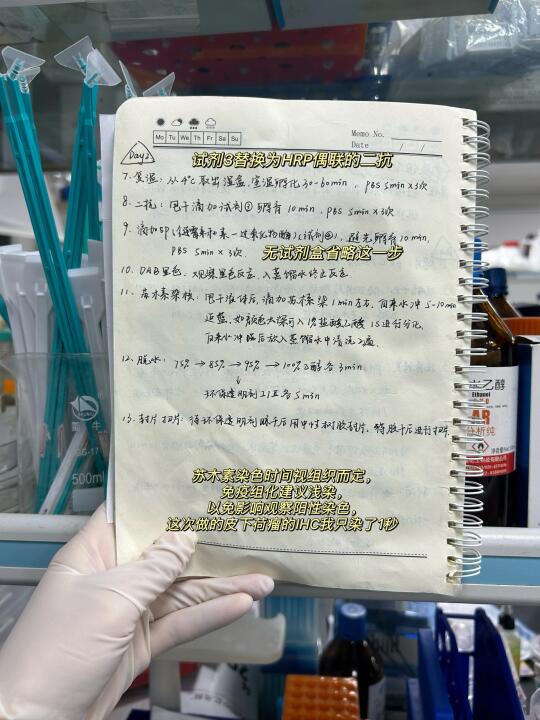 Mo Tu We Th Fr Sa Su
Memo No.
Date / /
Day2
试剂3替换为HRP偶联的二抗
7. 复温：从4℃取出湿盒，室温孵化30-60min，PBS 5min×3次
8. 二抗：甩干滴加试剂③孵育10min，PBS 5min×3次
9. 滴加SP(链霉素和素—过氧化物酶)(试剂④)，避光孵育10min，
PBS 5min×3次
无试剂盒省略这一步
10. DAB显色：观察显色反应，入蒸馏水终止反应
11. 苏木素染核：甩干液体后，滴加苏木素染1min左右，自来水冲5-10min
返蓝，如颜色太深可入1%盐酸乙醇1S进行分化，
自来水冲临后放入蒸馏水中清洗2遍
12. 脱水：75%→85%→95%→100%乙醇各3min
↓
环保透明剂I/II各5min
13. 封片扫片：待环保透明剂晾干后用中性树胶封片，待胶干后进行扫片
苏木素染色时间视组织而定，
免疫组化建议浅染，
以免影响观察阳性染色，
这次做的皮下荷瘤的IHC我只染了1秒
蜀牛
500ml
乙醇
Ethanol
AR
分析纯